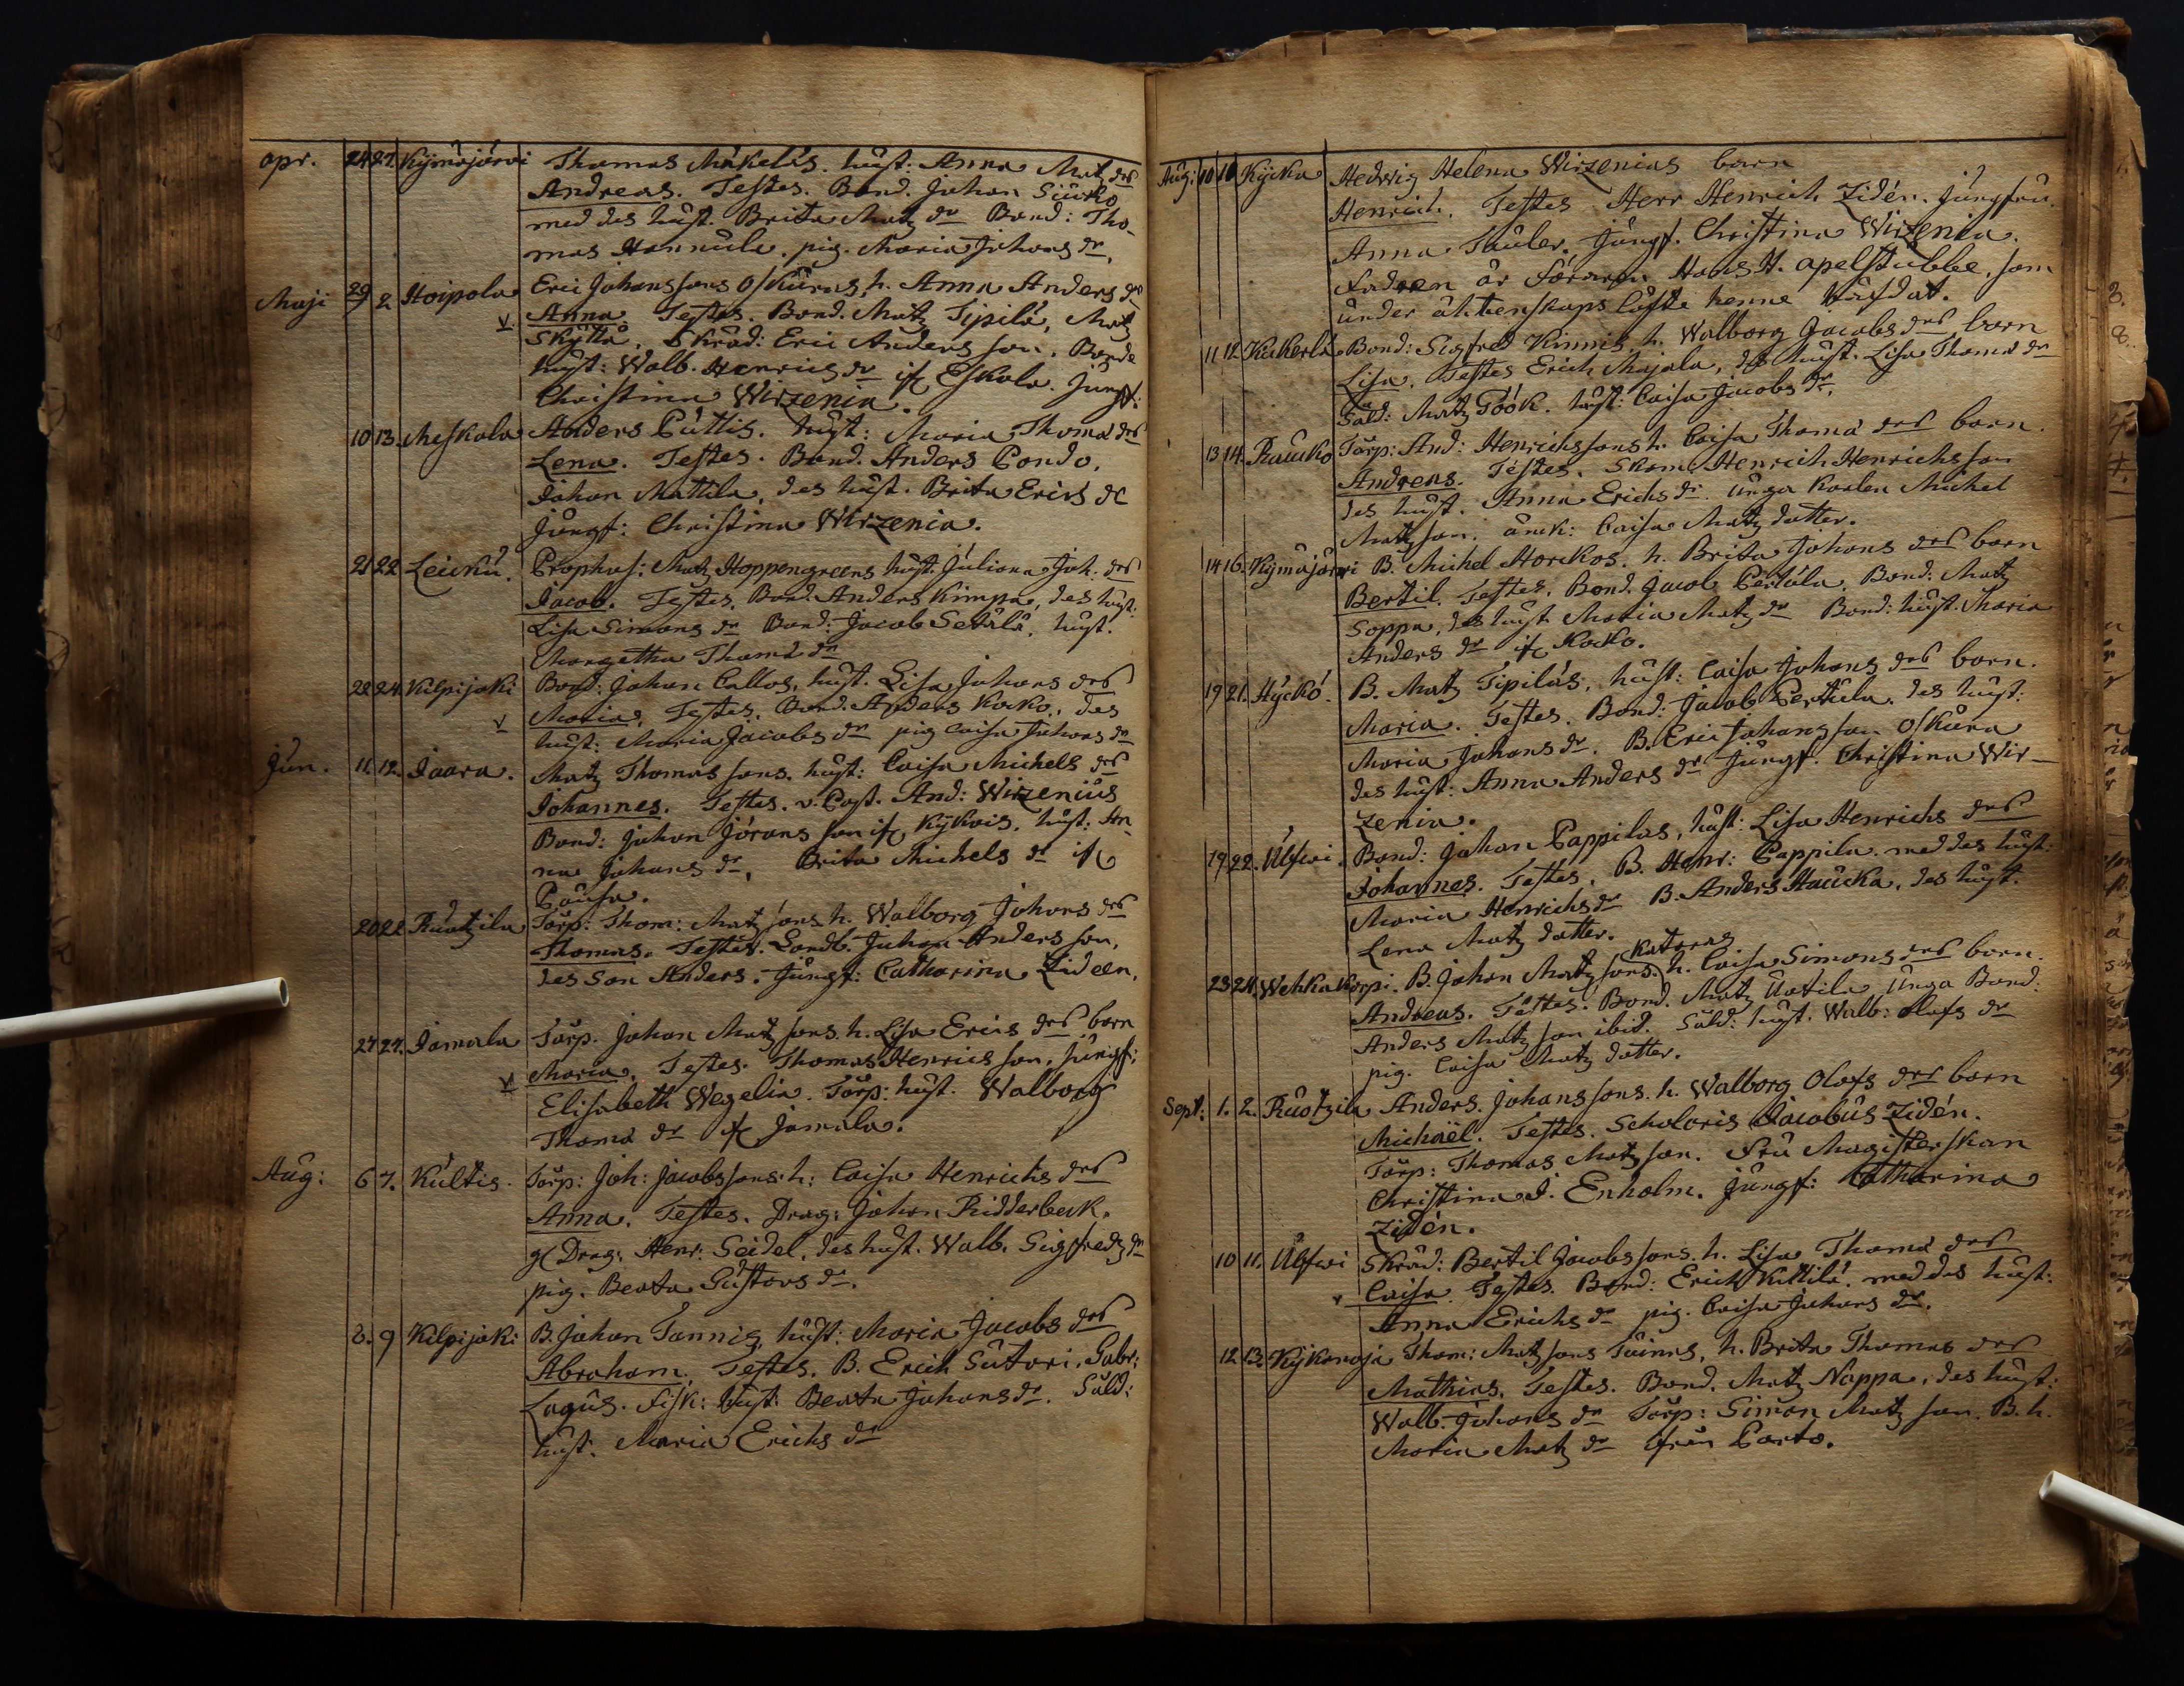 apr. 24 27. Kymäjärvi Thomas Mäkeläs. hust: Anna Matz drs
Andreas. Testes. Bond. Johan Siuko
med des hust. Brita Matz dr Bond: Tho-
mas Hannula. pig. Maria Johans dr.
Maji 29 2 Hoipola Eric Johanssons Oskuras, h. Anna Anders drs
v. Anna Testes. Bond. Matz Sipilä, Matz
Skyttä, Skräd: Eric Anders son. Bonde
hust: Walb. Henrics dr if Eskola. Jungf:
Christina Wirzenia.
10 13. Meskala Anders Puttis. hust: Maria Thomæ drs
Lena. Testes. Bond. Anders Pondo.
Johan Mattila, des hust. Brita Erics dr
Jungf: Christina Wirzenia.
21 22 Leickü. Prophos: Matz Hoppengreens hust. Juliana Joh. drs
Jacob. Testes. Bond. Anders Kimpa, des hust.
Lisa Simons dr Bond: Jacob Setälä, hust.
Margetha Thomæ dr
22 24. Kilpijoki Bond: Johan Callos, hust. Lisa Johans drs
v Maria, Testes. Bond. Anders Kocko, des
hust: Maria Jacobs dr pig Caisa Johans dr
Jun. 11 12. Jaara. Matz Thomas sons. hust: Caisa Michels drs
Johannes. Testes. v. Past. And: Wirzenius
Bond: Johan Jörans son if Kykois. hust: An-
na Johans dr, Brita Michels dr if
Pausa.
20 22 Ruotzila Torp: Thom: Matz sons h. Walborg Johans drs
Thomas. Testes. Landb. Johan Anders son,
des son Anders. Jungf: Catharina Zideen,
27 27. Jamala Torp. Johan Matz sons. h. Lisa Erics drs barn
v Maria, Testes. Thomas Henrics son, Jungf:
Elisabeth Wegelia. Torp: hust. Walborg
Thomæ dr if Jamala.
Aug: 6 7. Kultis. Torp: Joh: Jacobssons. h: Caisa Henrichs drs
Anna. Testes. Drag: Johan Ridderbeck.
gl Drag: Henr: Seidel, des hust. Walb. Sigfredz dr
pig. Beata Gustavs dr.
8. 9 Kilpijoki B. Johan Tannis, hust: Maria Jacobs drs
Abraham, Testes. B. Erich Sutari. Gabr:
Lagus. fisk: hust. Beata Johans dr. Sold:
hust. Maria Erichs dr
Aug: 10 10 Kycka Hedwig Helena Wirzenias barn
Henrich. Testes Herr Henrich Zidén. jungfru
Anna Tauler. Jungf. Christina Wirzenia.
Fadren är Förarn Hans H. apelstubbe, som
under äktenskaps löfte henne häfdat.
11 12 Kukerla Bond: Sigfred Kinnis h. Walborg Jacobs drs barn
Lisa. Testes Erich Majala, des hust. Lisa Thomæ dr
Sold: Matz Töök. hust: Caisa Jacobs dr.
13 14. Raucko Torp: And: Henrichssons h. Caisa Thomæ drs barn.
Andreas. Testes. Skom. Henrich Henrichsson
des hust. Anna Erichs dr. unga karlen Michel
Matz son. änck: Caisa Matz dotter.
14 16. Kymäjärvi B. Michel Horckos. h. Brita Johans drs barn
Bertil. Testes. Bond. Jacob Pertula. Bond: Matz
Soppa, des hust Maria Matz dr Bond: hust. Maria
Anders dr if Kocko.
19 21. Hyckö. B. Matz Sipiläs, hust: Caisa Johans drs barn.
Maria. Testes. Bond: Jacob Pertula. des hust:
Maria Johans dr. B. Eric Johansson Oskura
des hust: Anna Anders dr Jungf. Christina Wir-
zenia.
19 22. Ulfwi. Bond: Johan Pappilas, hust: Lisa Henrichs drs
Johannes. Testes. B. Henr: Pappila. med des hust:
Maria Henrichs dr B. Anders Haucka, des hust.
Lena Matz dotter.
Kataras
23 24. Wehkakorpi. B. Johan Matz sons. h. Caisa Simons drs barn.
Andreas. Testes. Bond. Matz Uotila Unga Bond:
Anders Matz son ibid. Sold: hust. Walb: Olofs dr
pig. Caisa Matz dotter.
Sept: 1. 2. Ruotzila Anders. Johanssons. h. Walborg Olofs drs barn
Michaël. Testes. Scholaris Jacobus Zidén.
Torp: Thomas Matz son. Fru Magisterskan
Christina J. Enholm. Jungf: Catharina
Zidén.
10 11. Ulfwi Skräd: Bertil Jacobssons. h. Lisa Thomæ drs
v Caisa. Testes. Bond: Erich Kittilä. med des hust:
Anna Erichs dr pig. Caisa Johans dr.
12 13. Kykonoja Thom: Matz sons Tuinas, h. Brita Thomas drs
Mathias. Testes. Bond. Matz Nappa. des hust:
Walb. Johans dr Torp: Simon Matz son. B. h.
Maria Matz dr ifrån Parto.